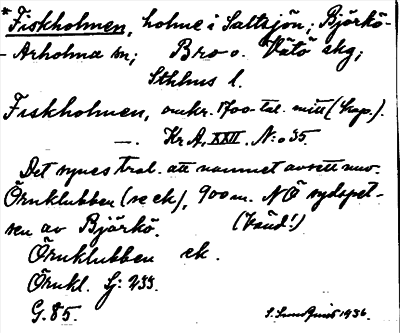 * Fiskholmen, holme i Saltsjön; Björkö-
- Arholma sn; Bro o. Vätö skg;
Sthlms l.
Fiskholmen, omkr. 1700-tal. mitt (kop.).
—. Kr.A, XXII. N:o 35.
Det synes trol. att namnet avsett nuv.
Örnklubben (se ek), 900 m. NÖ sydspet-
sen av Björkö. (Vänd!)
Örnklubben ek.
Örnkl. Lj: 233.
G. 85.
1936.